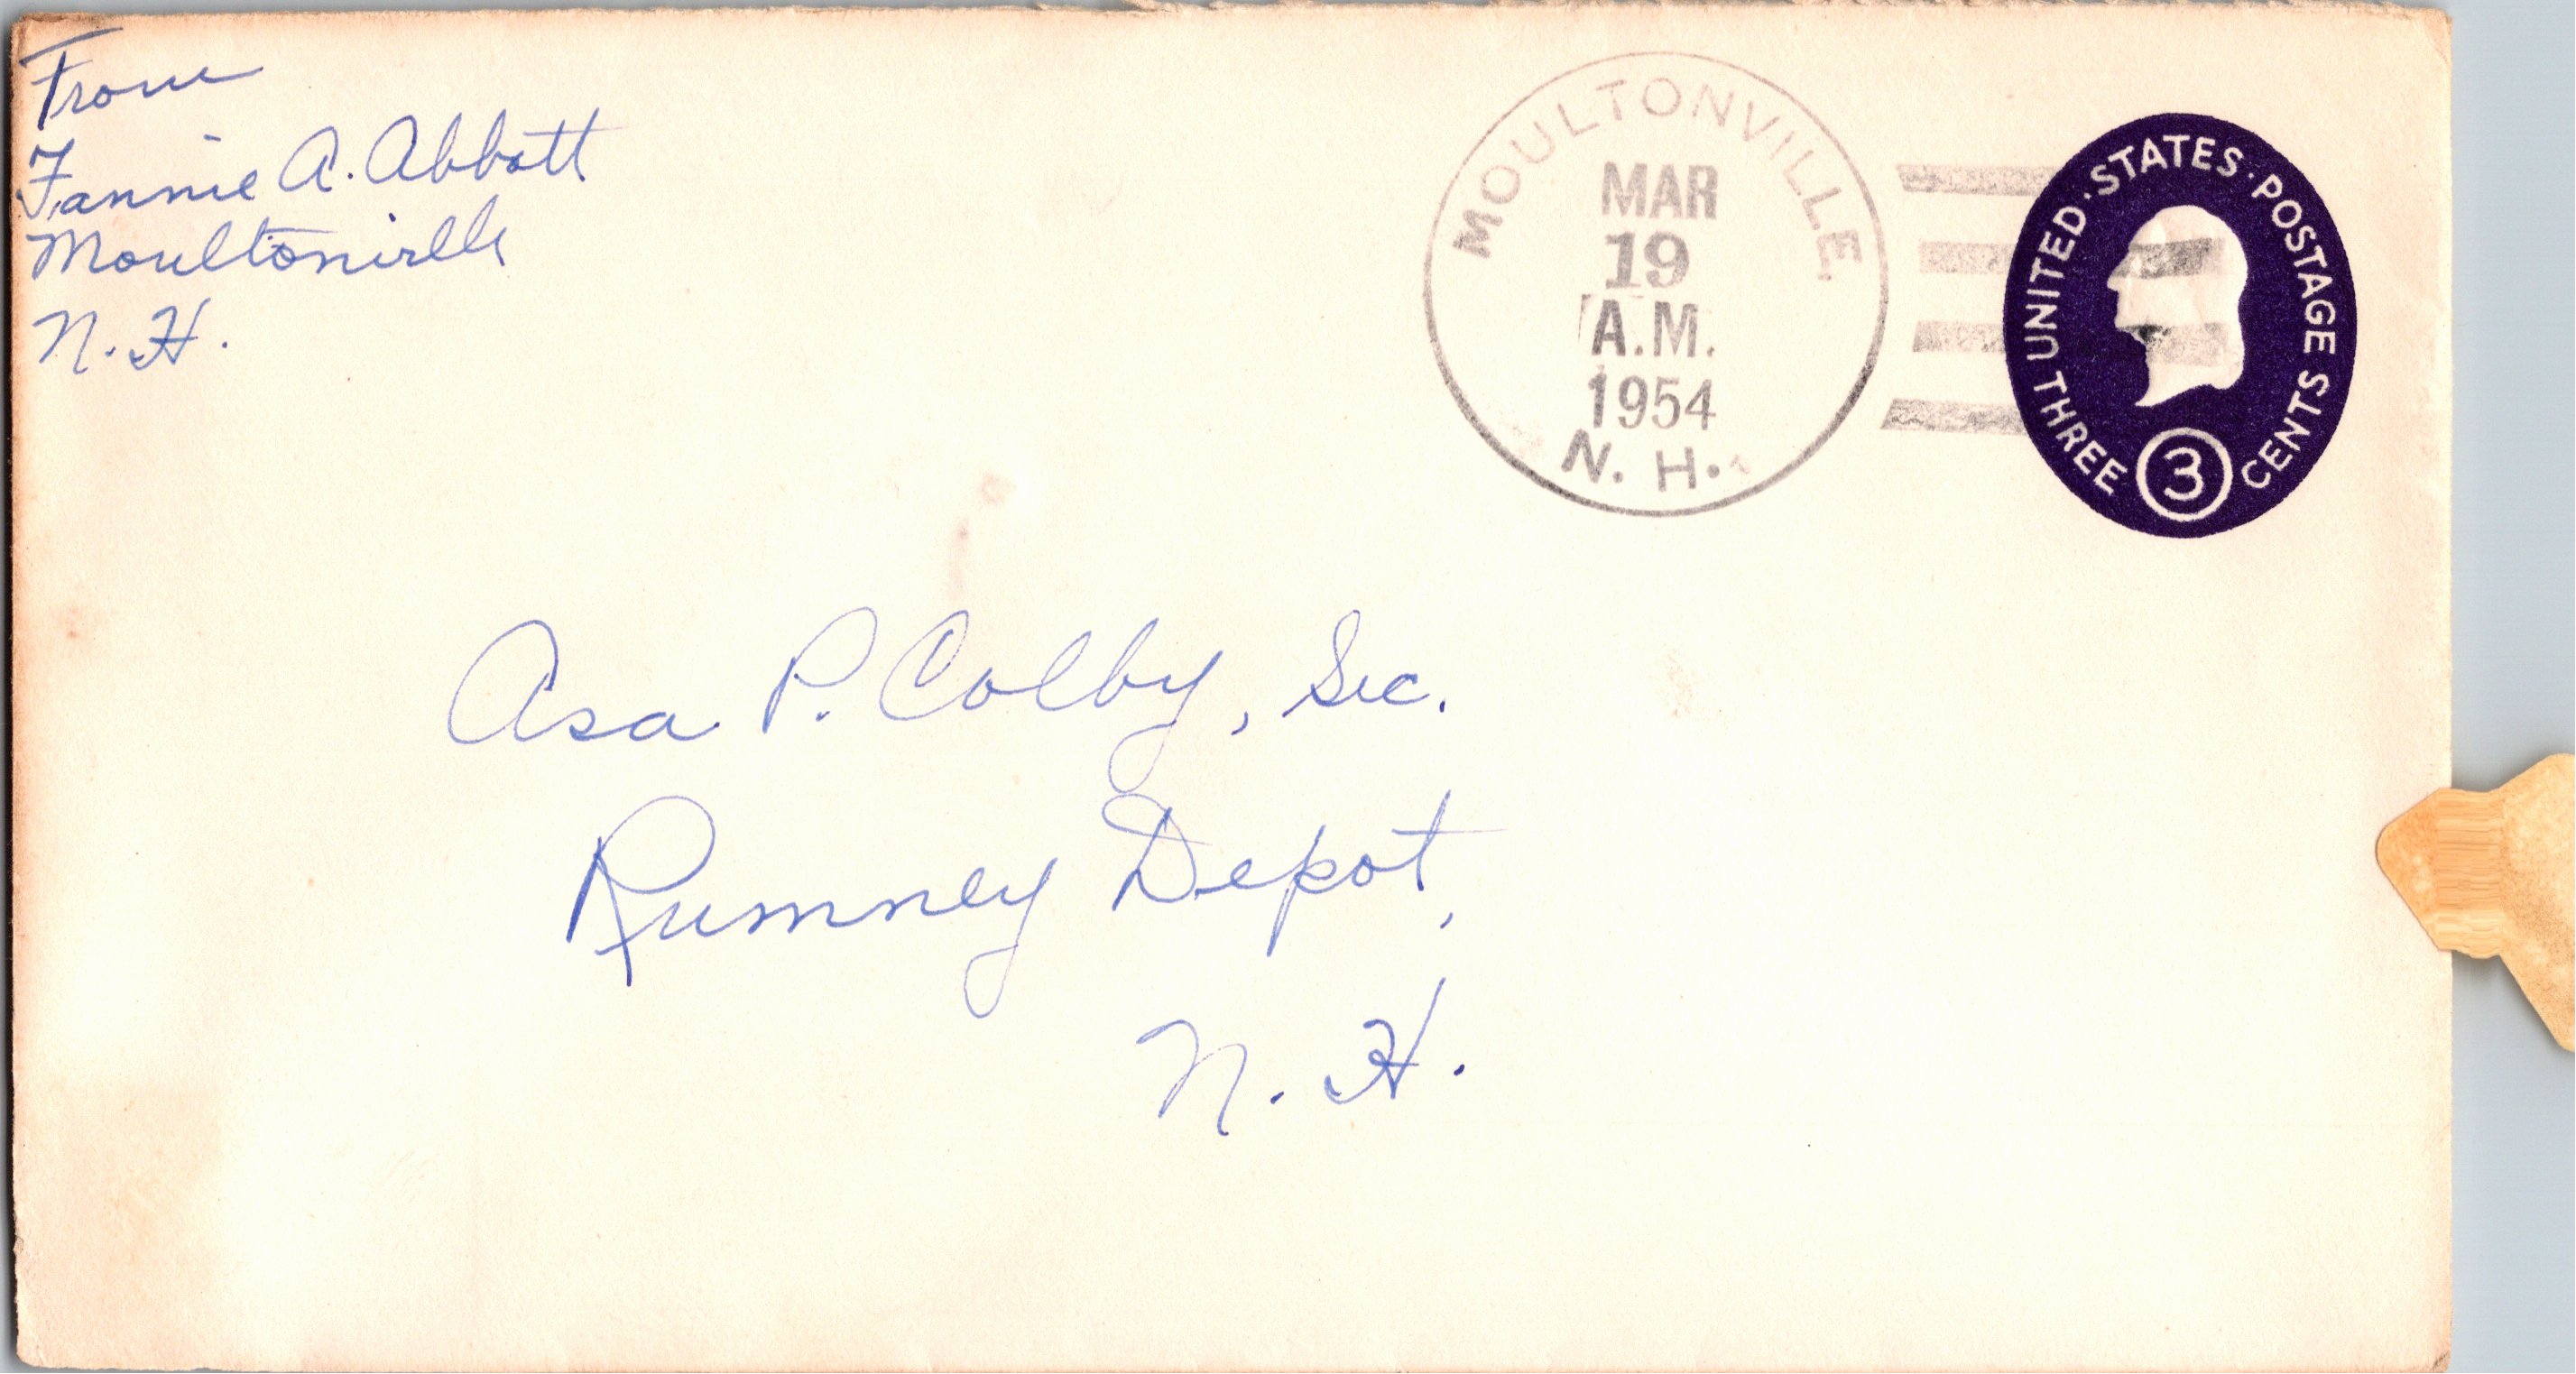 From
Fannie A. Abbott
Moultonville
N. H.
MOULTONVILLE,
MAR
19
A.M.
1954
N. H.
UNITED · STATES · POSTAGE
THREE 3 CENTS
Asa P. Colby, Sec.
Rumney Depot,
N. H.